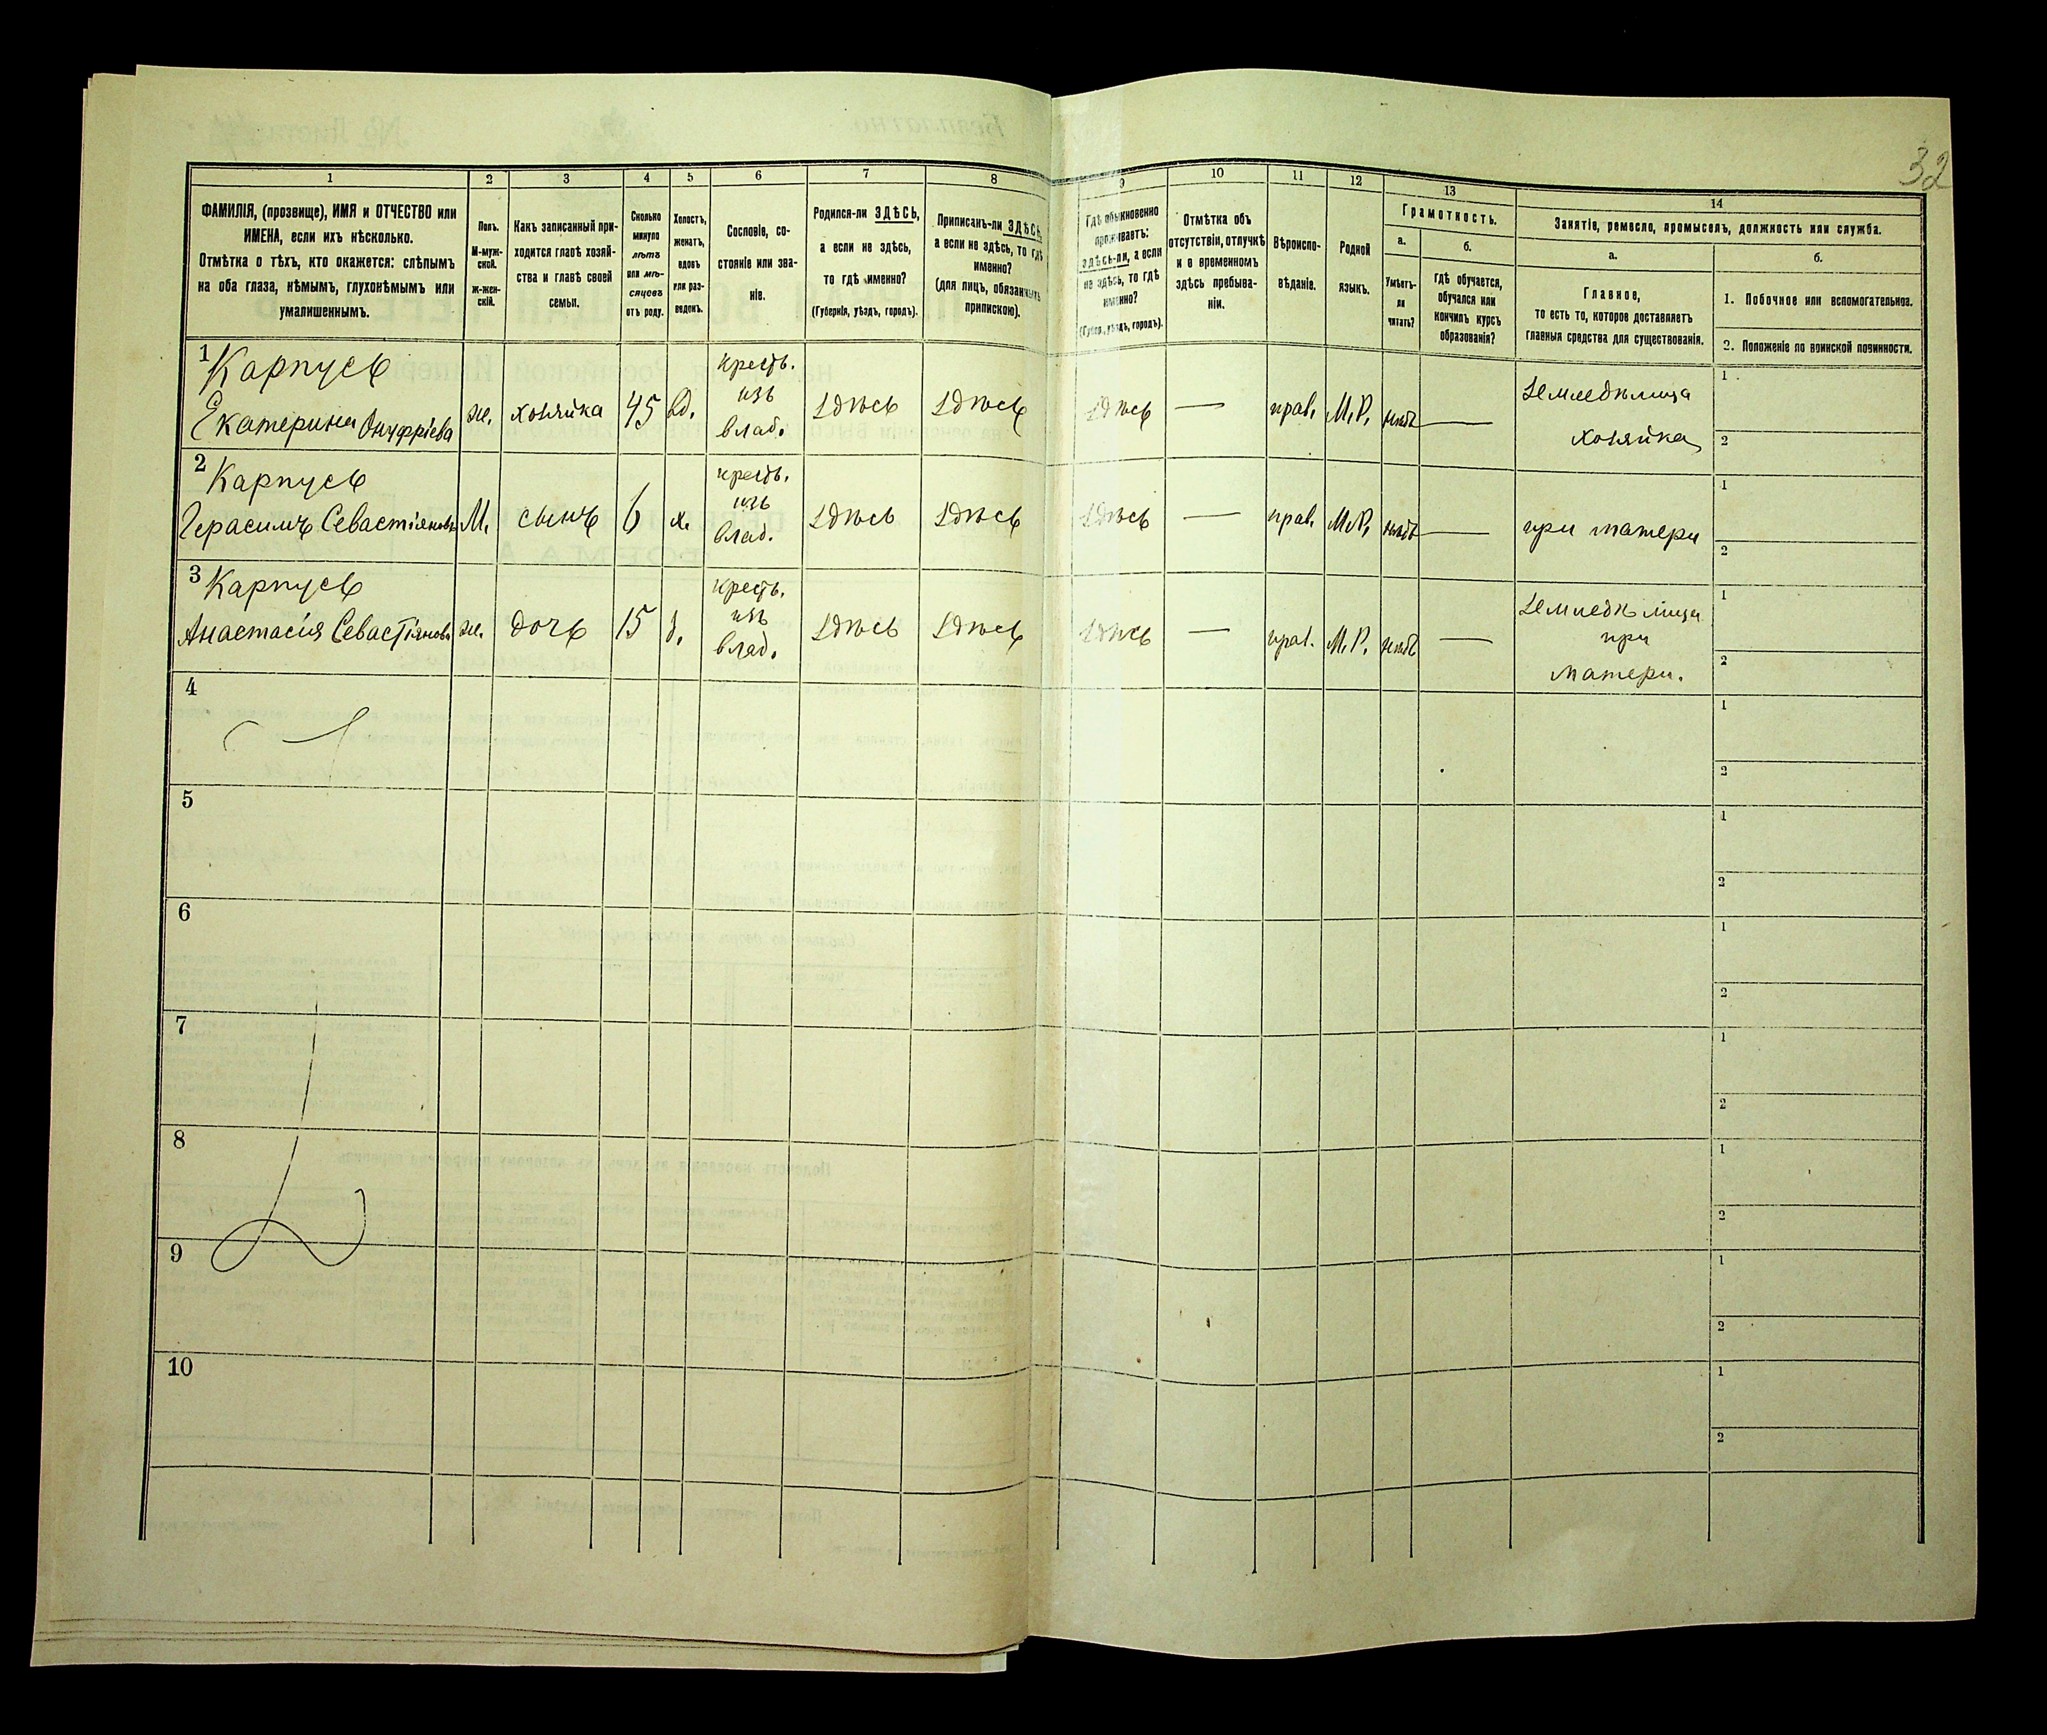 32
1 2 3 4 5 6 7 8 9 10 11 12 13 14
ФАМИЛІЯ, (прозвище), ИМЯ и ОТЧЕСТВО или
ИМЕНА, если ихъ нѣсколько.
Отмѣтка о тѣхъ, кто окажется: слѣпымъ
на оба глаза, нѣмымъ, глухонѣмымъ или
умалишеннымъ.
Полъ.
М-муж-
ской.
Ж-жен-
скій.
Какъ записанный при-
ходится главѣ хозяй-
ства и главѣ своей
семьи.
Сколько
минуло
лѣтъ
или мѣ-
сяцевъ
отъ роду.
Холостъ,
женатъ,
вдовъ
или раз-
веденъ.
Сословіе, со-
стояніе или зва-
ніе.
Родился-ли ЗДѢСЬ,
а если не здѣсь,
то гдѣ именно?
(Губернія, уѣздъ, городъ).
Приписанъ-ли ЗДѢСЬ,
а если не здѣсь, то гдѣ
именно?
(для лицъ, обязанныхъ
припискою).
Гдѣ обыкновенно
проживаетъ:
здѣсь-ли, а если
не здѣсь, то гдѣ
именно?
(Губер., уѣздъ, городъ).
Отмѣтка объ
отсутствіи, отлучкѣ
и о временномъ
здѣсь пребыва-
ніи.
Вѣроиспо-
вѣданіе.
Родной
языкъ.
Грамотность.
а.
Умѣетъ-
ли
читать?
б.
гдѣ обучается,
обучался или
кончилъ курсъ
образованія?
Занятіе, ремесло, промыселъ, должность или служба.
а.
Главное,
то есть то, которое доставляетъ
главныя средства для существованія.
б.
1. Побочное или вспомогательное.
2. Положеніе по воинской повинности.
1 Карпусь
Екатерина Онуфріева
ж. хозяйка 45 вд.
крест.
изъ
влад.
здѣсь здѣсь здѣсь — прав. М.Р. нѣтъ —
Земледѣлица
хозяйка
1
2
2 Карпусь
Герасимъ Севастіяновъ
М. сынъ 6 х.
крест.
изъ
влад.
здѣсь здѣсь здѣсь — прав. М.Р. нѣтъ —
при матери
1
2
3 Карпусь
Анастасія Севастіянова
ж. дочь 15 д.
крест.
изъ
влад.
здѣсь здѣсь здѣсь — прав. М.Р. нѣтъ —
Земледѣлица
при
матери.
1
2
4
1
2
5
1
2
6
1
2
7
1
2
8
1
2
9
1
2
10
1
2